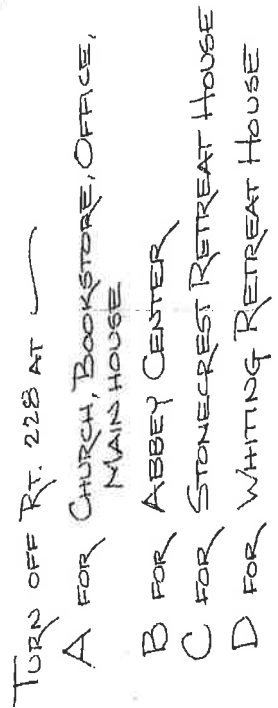 TURN OFF RT. 228 AT
A FOR CHURCH, BOOKSTORE, OFFICE,
MAIN HOUSE
B FOR ABBEY CENTER
C FOR STONECREST RETREAT HOUSE
D FOR WHITING RETREAT HOUSE